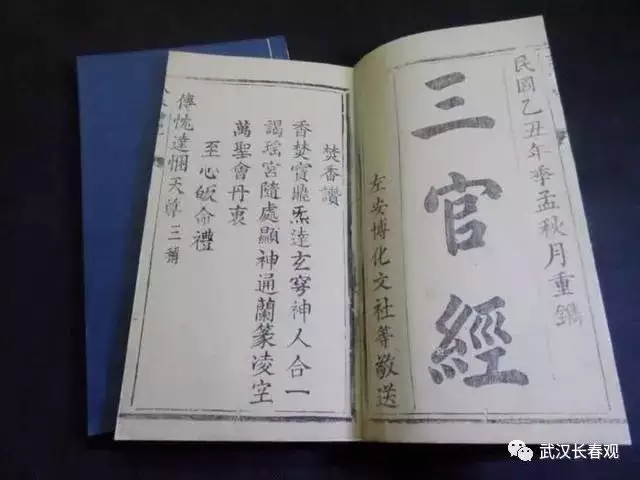 民國乙丑年季孟秋月重鐫
三官經
左安博化文社等敬送
焚香讚
香焚寶鼎炁達玄穹神人合一
謁瑤宮隨處顯神通蘭篆凌空
萬聖會丹衷
至心皈命禮
傳忱達悃天尊三稱
武汉长春观